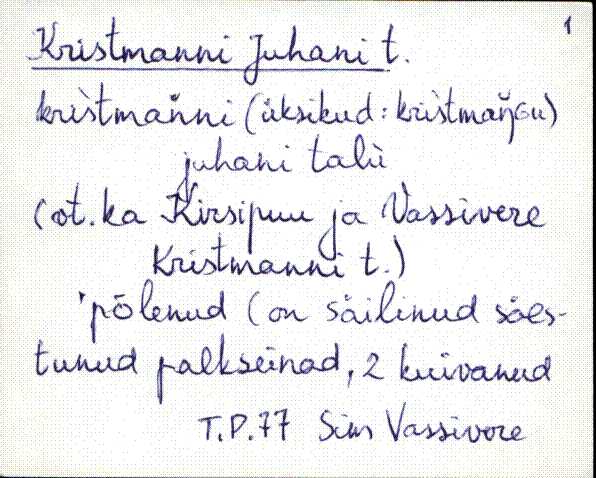 1
Kristmanni Juhani t.
kris̀tman̆ni (üksikud: kris̀tmaŋ̆Gu)
juhani talù
(vt. ka Kirsipuu ja Vassivere
Kristmanni t.)
'põlenud (on säilinud söes-
tunud palkseinad, 2 kuivanud
T.P.77 Sim Vassivere